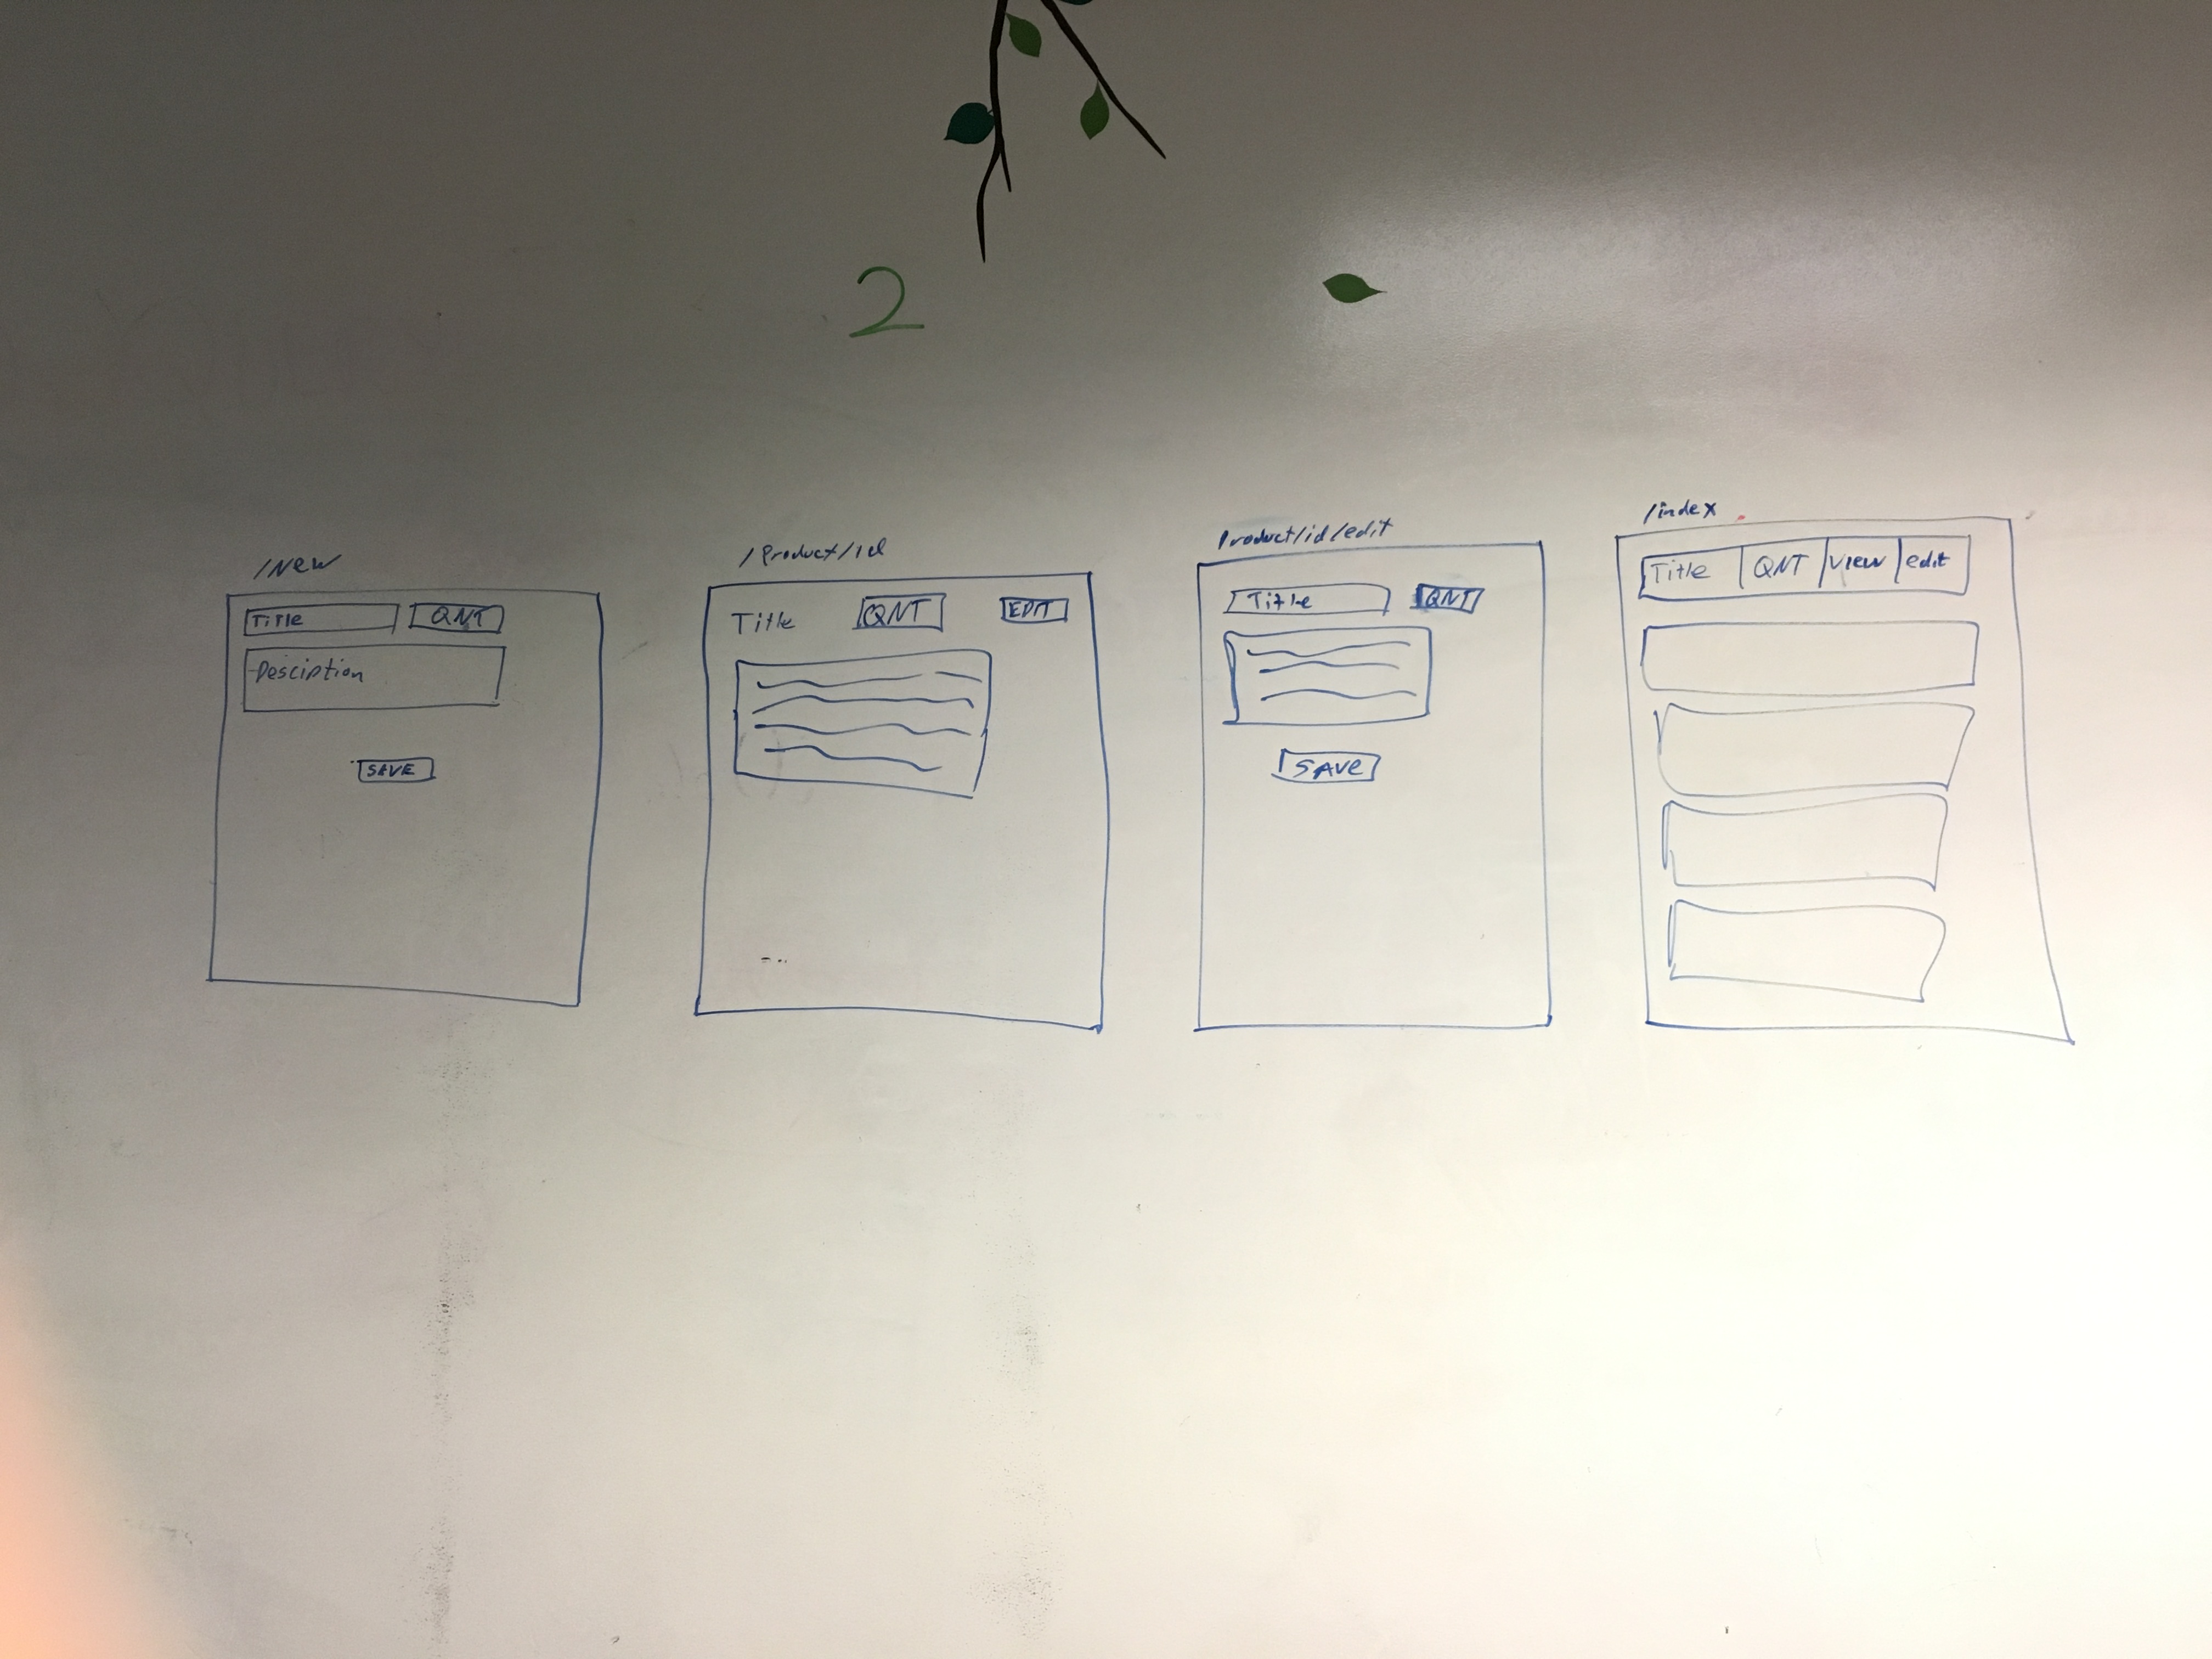 2
/New
Title QNT
Desciption
SAVE
/Product/id
Title QNT EDIT
Product/id/edit
Title QNT
SAVE
/index
Title QNT view edit